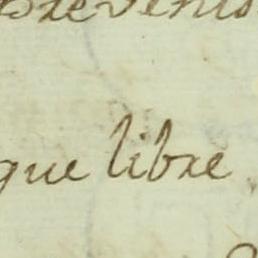 que libre